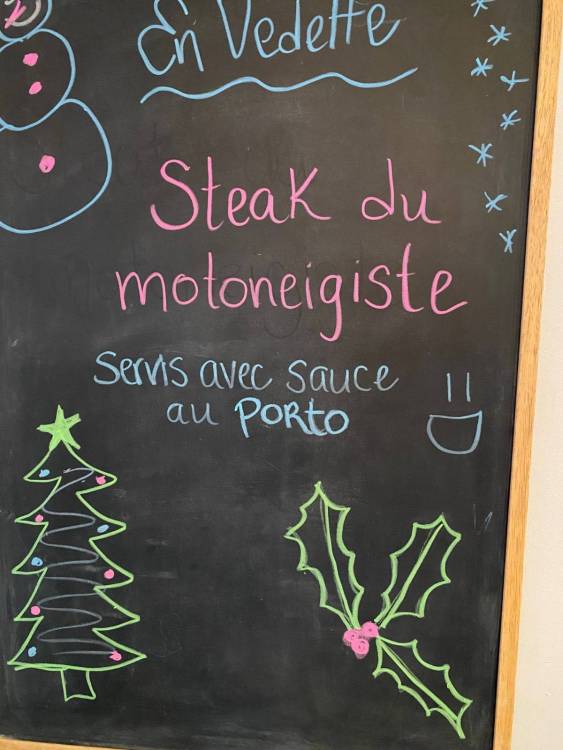 En Vedette
Steak du
motoneigiste
Servis avec sauce
au PORTO